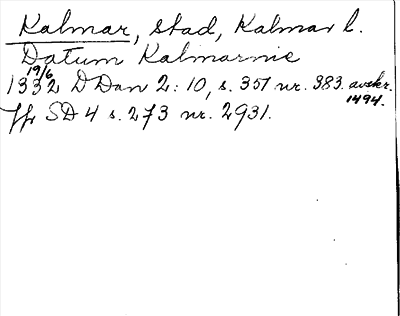 Kalmar, stad, Kalmar l.
Datum Kalmarnie
19/6
1332 DDan 2:10, s. 351 nr. 383. avskr. 1494.
Jfr SD 4 s. 273 nr. 2931.